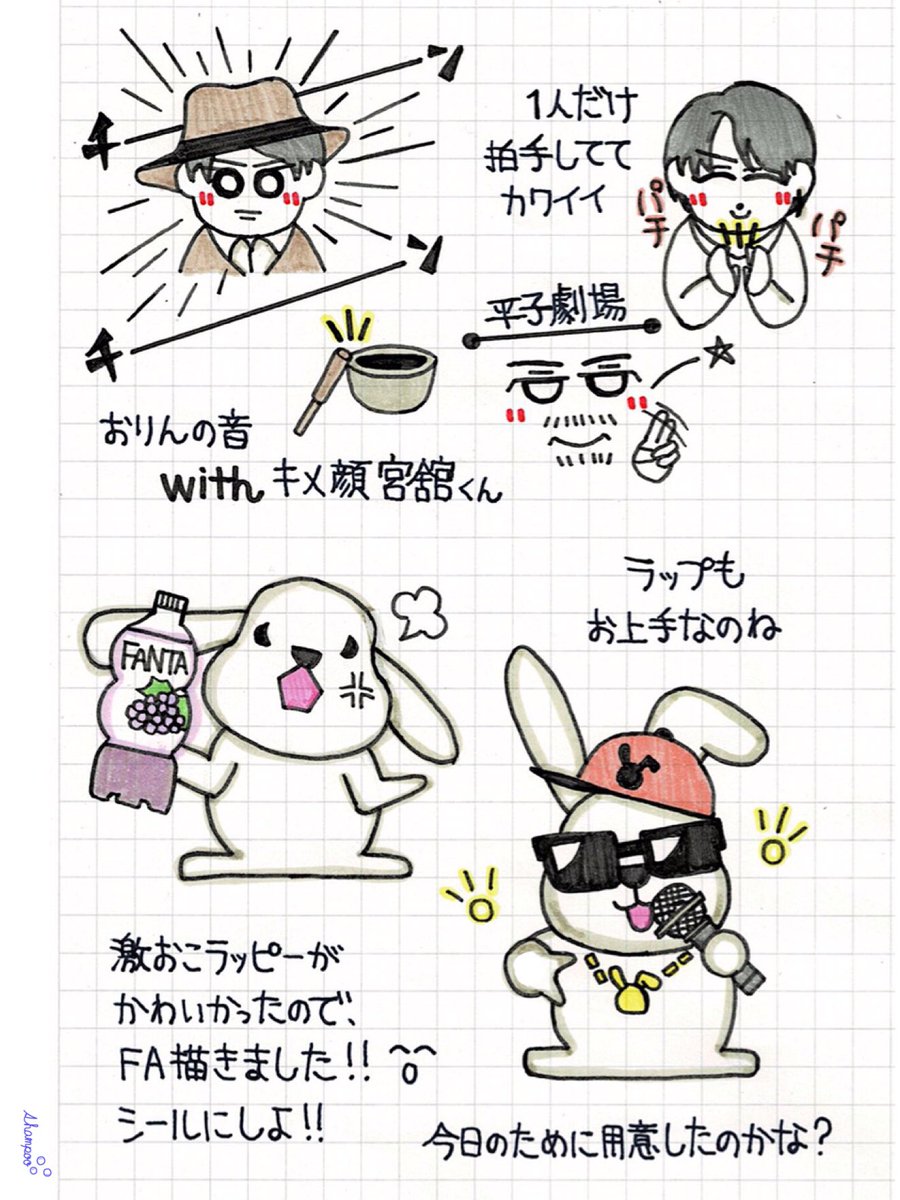 チーン
チーン
1人だけ
拍手してて
カワイイ
パチ
パチ
平子劇場
おりんの音
with キメ顔 宮舘くん
ラップも
お上手なのね
FANTA
激おこラッピーが
かわいかったので、
FA描きました!!
シールにしよ!!
今日のために用意したのかな?
shampoo